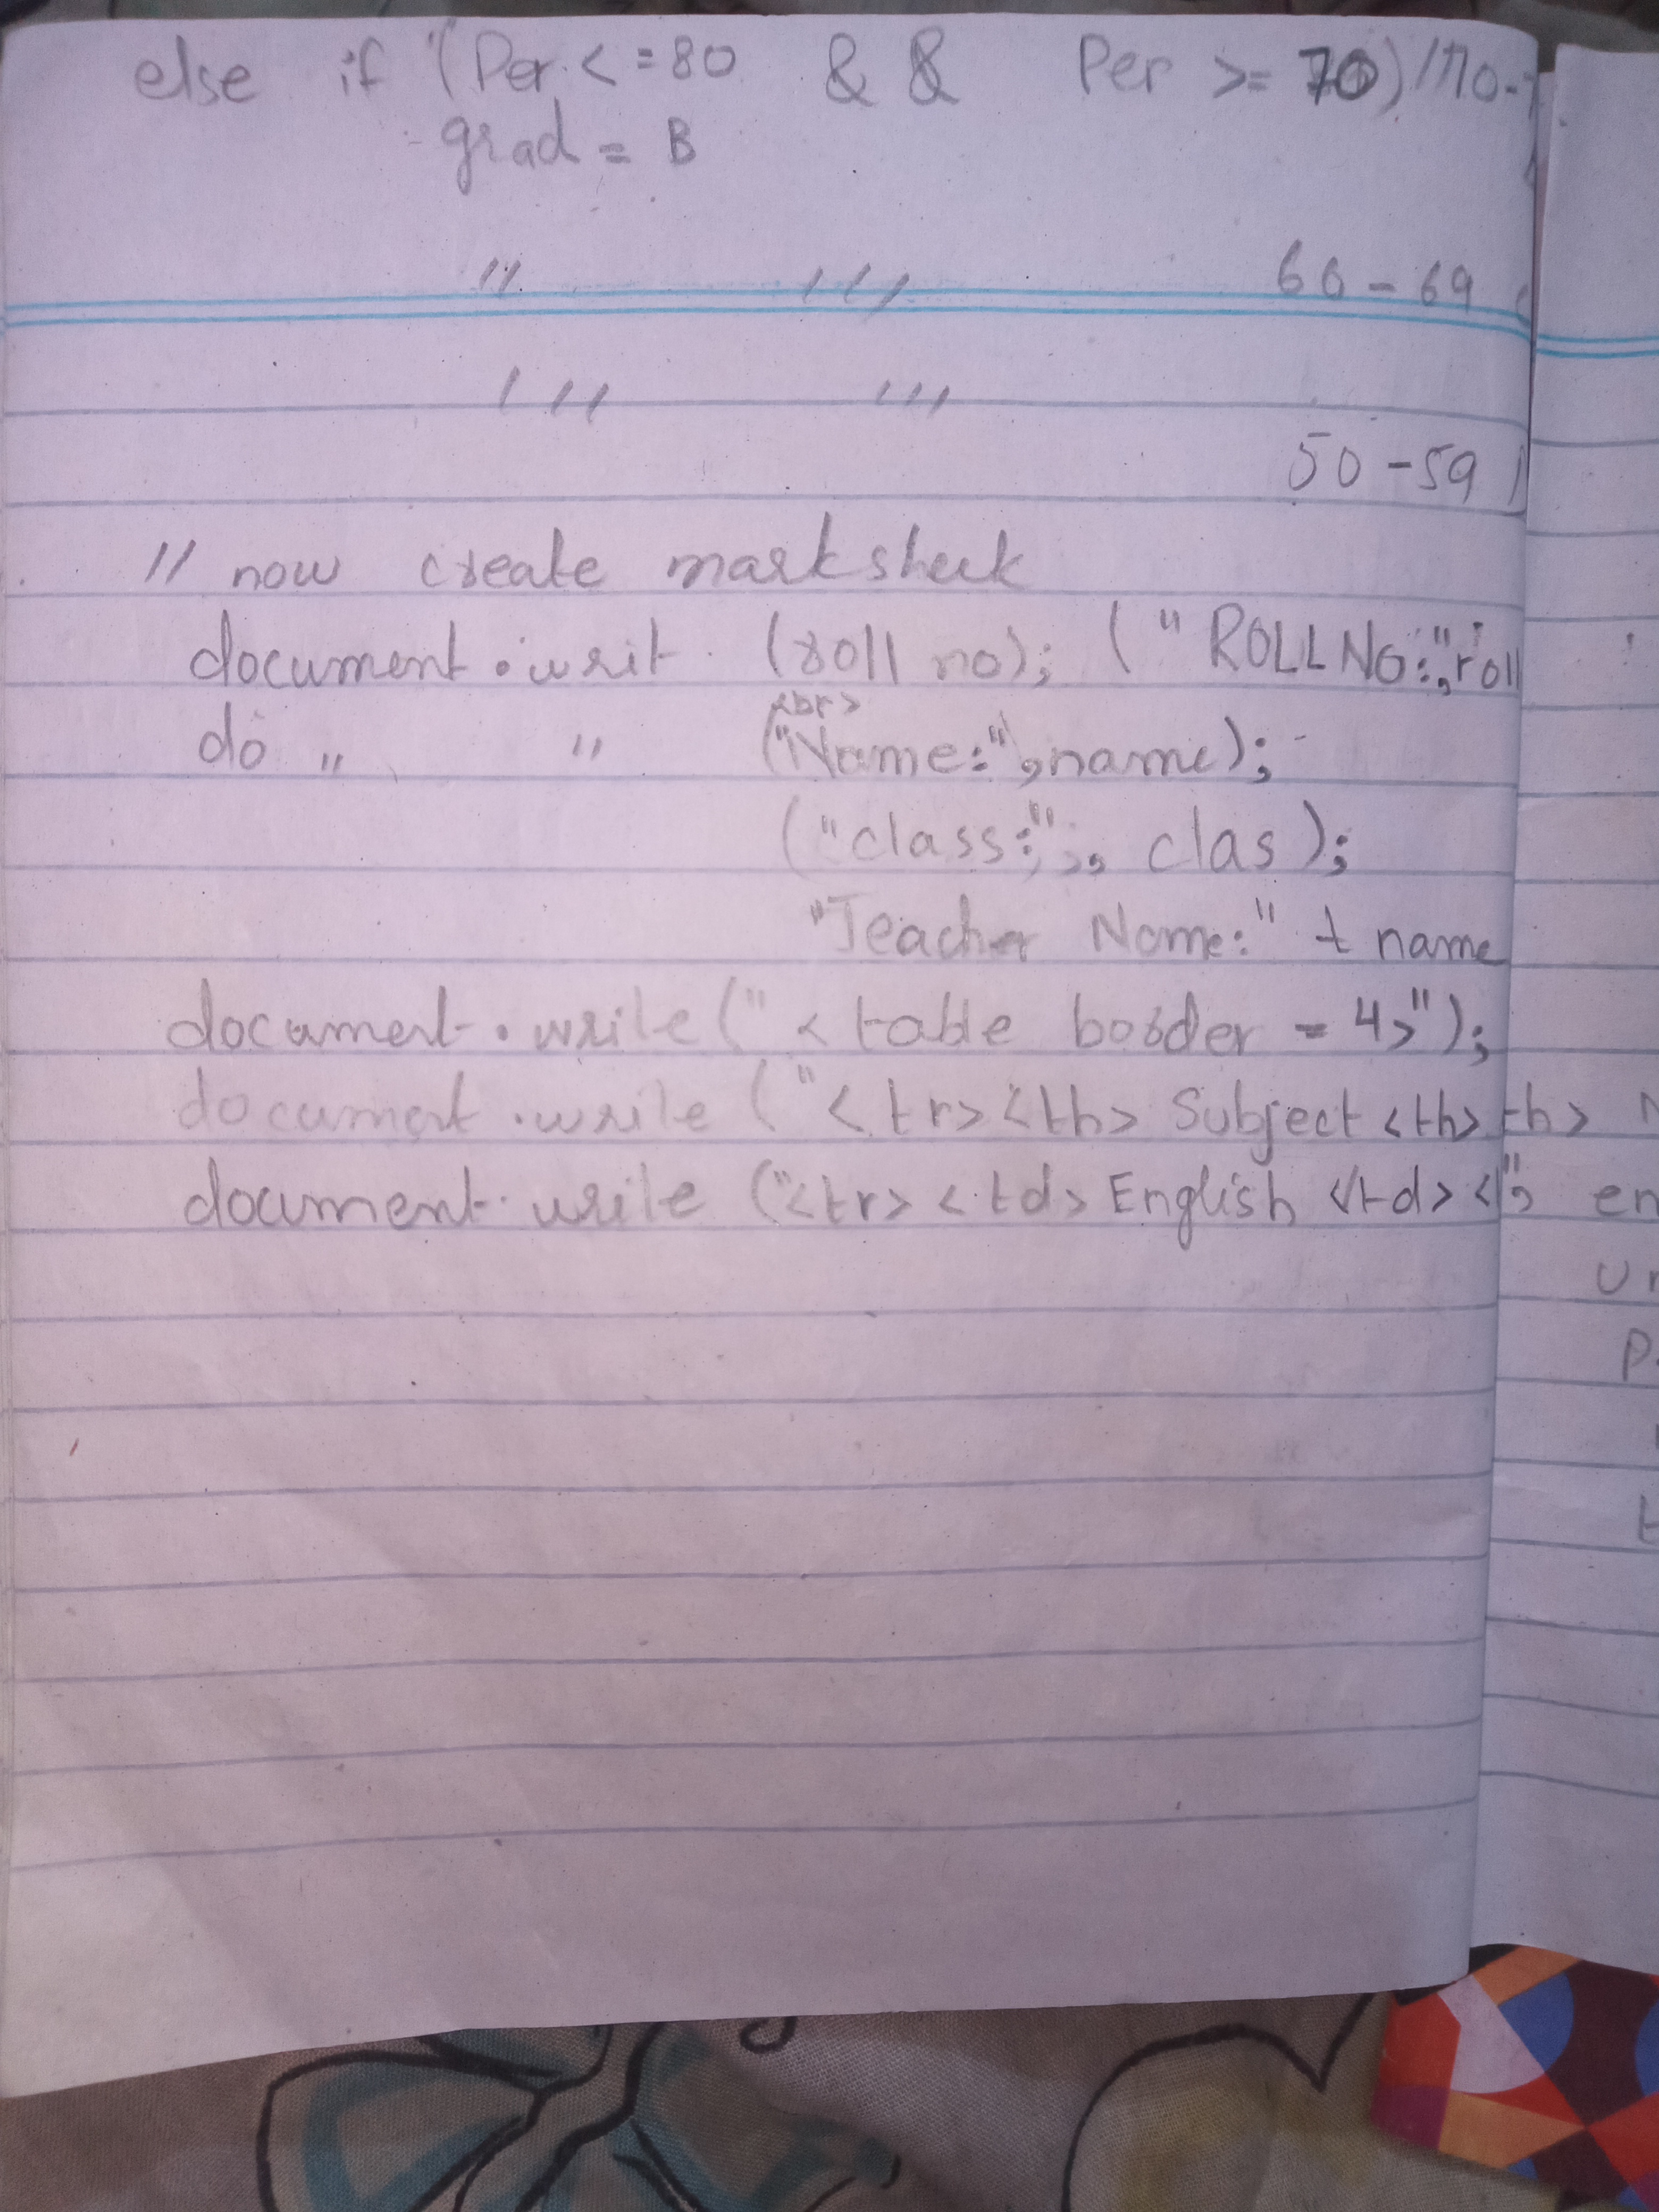 else if (Per <=80 && Per >= 70) //70-7
grad = B
" ,,, 60-69
,,, ,,,
50-59
// now create marksheet
document.writ (roll no); ("ROLL NO:",roll
<br>
do " " ("Name:",name);
("class:", clas);
"Teacher Name:" t name
document.write("<table border = 4>");
document.write ("<tr><th> Subject <th> th>
document.write ("<tr><td> English </td><", en
Ur
P
t